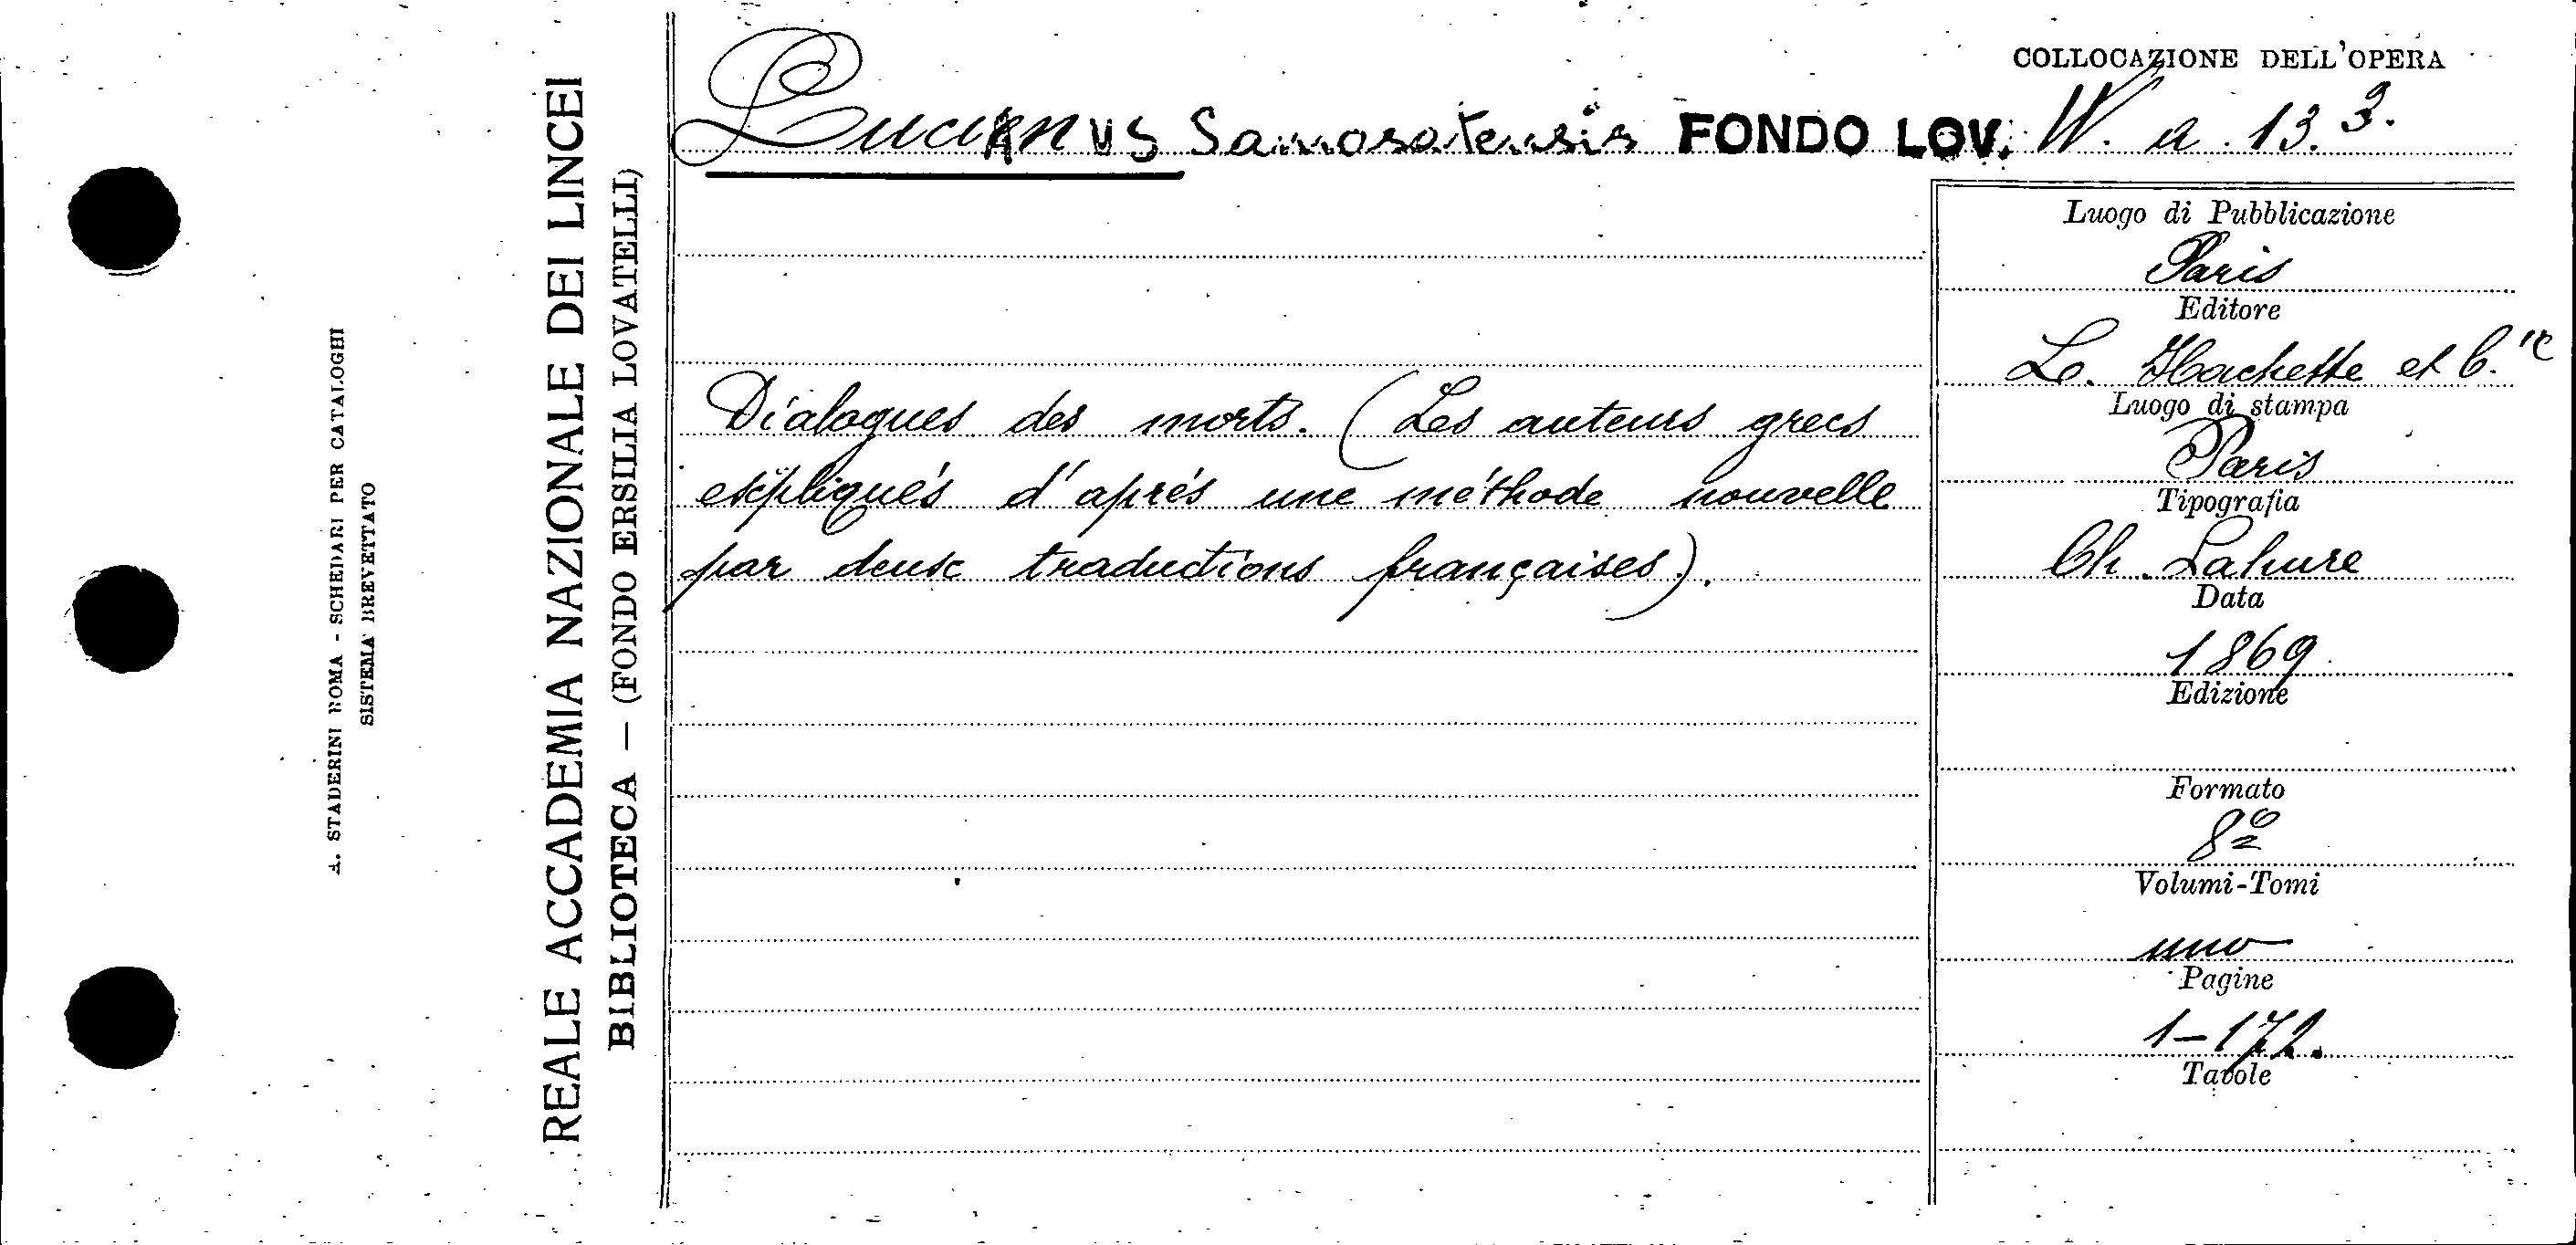 COLLOCAZIONE DELL'OPERA
Lucianus Samosatensis FONDO LOV. W. a. 13. 3.
Luogo di Pubblicazione
Paris
Editore
L. Hachette et C.ie
Luogo di stampa
Paris
Tipografia
Ch. Lahure
Data
1869
Edizione
Formato
8º
Volumi-Tomi
uno
Pagine
1-172.
Tavole
Dialogues des morts. (Les auteurs grecs
expliqués d'après une méthode nouvelle
par deux traductions françaises).
REALE ACCADEMIA NAZIONALE DEI LINCEI
BIBLIOTECA — (FONDO ERSILIA LOVATELLI)
A. STADERINI ROMA - SCHEDARI PER CATALOGHI
SISTEMA BREVETTATO